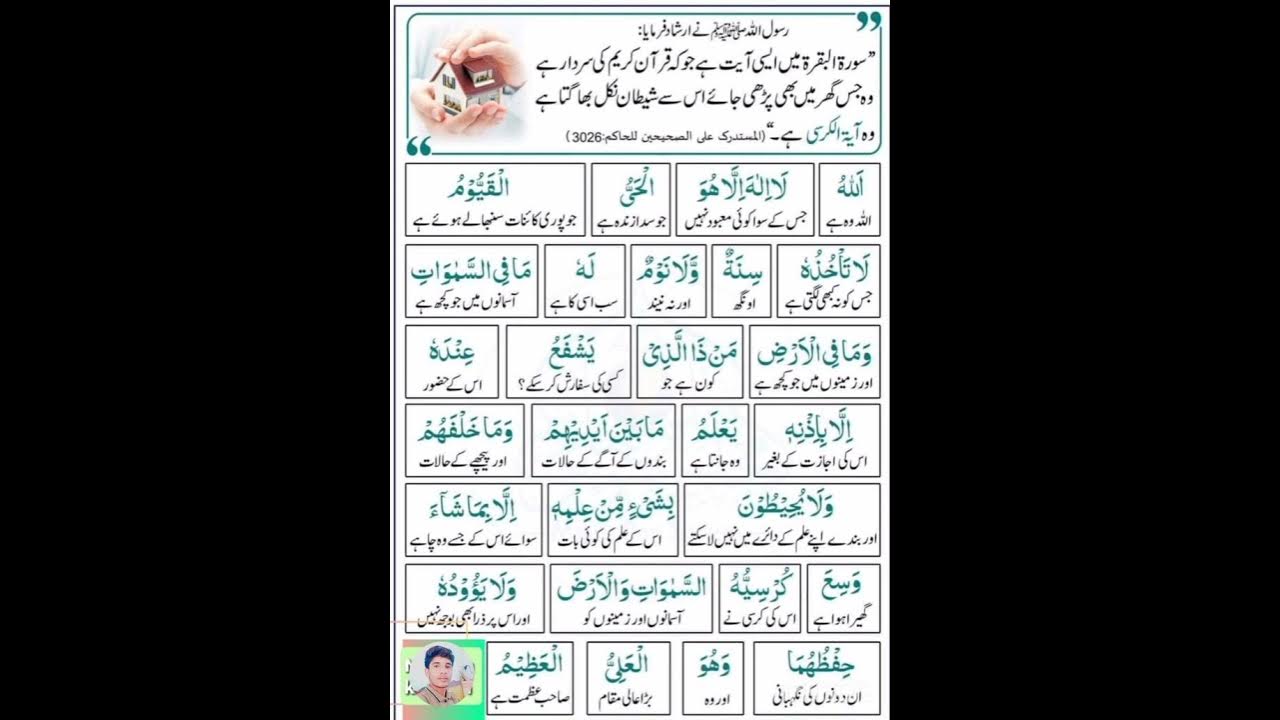 رسول اللہ ﷺ نے ارشاد فرمایا:
”سورۃ البقرۃ میں ایسی آیت ہے جو کہ قرآن کریم کی سردار ہے
وہ جس گھر میں بھی پڑھی جائے اس سے شیطان نکل بھاگتا ہے
وہ آیۃ الکرسی ہے۔“ (المستدرک علی الصحیحین للحاکم:3026)
اَللّٰهُ لَاۤ اِلٰهَ اِلَّا هُوَ الْحَیُّ الْقَیُّوْمُ
اللہ وہ ہے جس کے سوا کوئی معبود نہیں جو سدا زندہ ہے جو پوری کائنات سنبھالے ہوئے ہے
لَا تَاْخُذُهٗ سِنَةٌ وَّلَا نَوْمٌ لَهٗ مَا فِی السَّمٰوَاتِ
جس کو نہ کبھی لگتی ہے اونگھ اور نہ نیند سب اسی کا ہے آسمانوں میں جو کچھ ہے
وَمَا فِی الْاَرْضِ مَنْ ذَا الَّذِیْ یَشْفَعُ عِنْدَهٗ
اور زمینوں میں جو کچھ ہے کون ہے جو کسی کی سفارش کر سکے؟ اس کے حضور
اِلَّا بِاِذْنِهٖ یَعْلَمُ مَا بَیْنَ اَیْدِیْهِمْ وَمَا خَلْفَهُمْ
اس کی اجازت کے بغیر وہ جانتا ہے بندوں کے آگے کے حالات اور پیچھے کے حالات
وَلَا یُحِیْطُوْنَ بِشَیْءٍ مِّنْ عِلْمِهٖ اِلَّا بِمَا شَآءَ
اور بندے اپنے علم کے دائرے میں نہیں لا سکتے اس کے علم کی کوئی بات سوائے اس کے جسے وہ چاہے
وَسِعَ كُرْسِیُّهُ السَّمٰوَاتِ وَالْاَرْضَ وَلَا یَؤُوْدُهٗ
گھیرا ہوا ہے اس کی کرسی نے آسمانوں اور زمینوں کو اور اس پر ذرا بھی بوجھ نہیں
حِفْظُهُمَا وَهُوَ الْعَلِیُّ الْعَظِیْمُ
ان دونوں کی نگہبانی اور وہ بڑا عالی مقام صاحب عظمت ہے